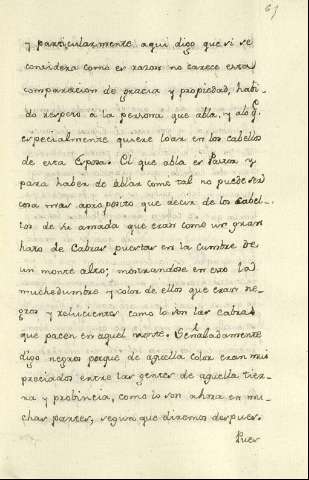 67
y particularmente aqui digo que si se
considera como es razon no carece esta
comparacion de gracia y propiedad, habi-
do respeto á la persona que abla, y alo q.
especialmente quiere loar en los cabellos
de esta Esposa. El que abla es Pastor y
para haber de ablar como tal no puede ser
cosa mas aproposito que decir de los cabel-
los de su amada que eran como un gran
hato de Cabras puestas en la cumbre de
un monte alto; mostrandose en esto la
muchedumbre y color de ellos que eran ne-
gros y relucientes como lo son las cabras
que pacen en aquel monte. Señaladamente
digo negros porque de aquella color eran mui
preciados entre las gentes de aquella tier-
ra y probincia, como lo son ahora en mu-
chas partes, segun que diremos despues.
Pues